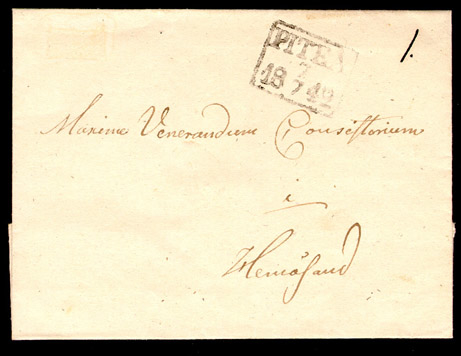 PITEÅ
7
18 7 42
1.
Maxime Venerandum Consistorium
i
Hernösand